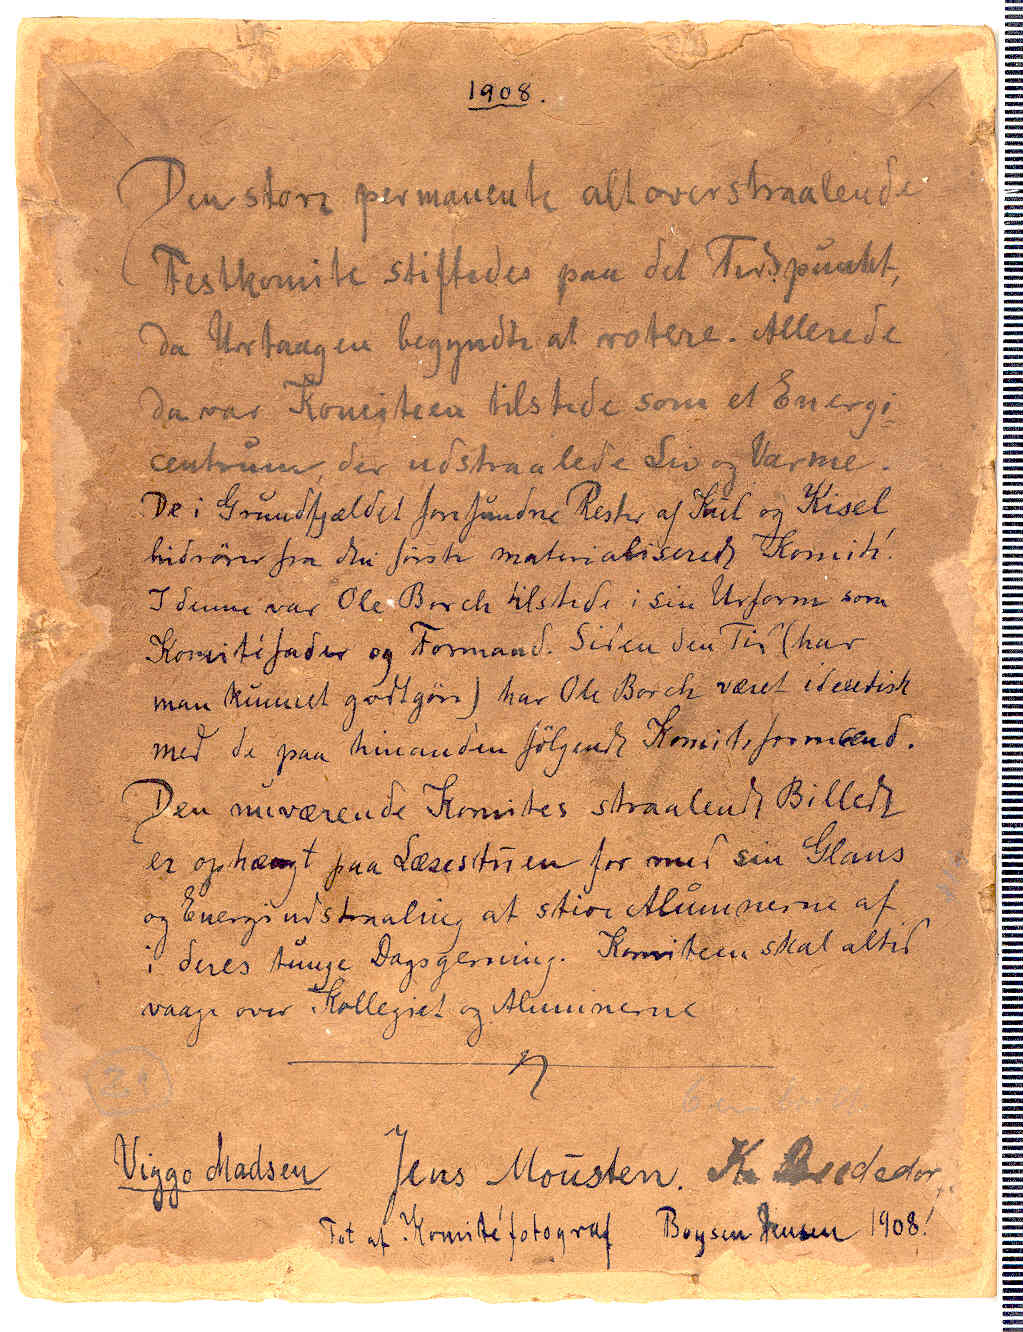 1908.
Den store permanente altoverstraalende
Festkomite stiftedes paa det Tidspunkt,
da Urtaagen begyndte at rotere. Allerede
da var Komiteen tilstede som et Energi-
centrum, der udstraalede Liv og Varme.
De i Grundfjældet forefundne Rester af Kul og Kisel
hidrörer fra den første materialiserede Komité.
I denne var Ole Borch tilstede i sin Urform som
Komitéfader og Formand. Siden den Tid (har
man kunnet godtgöre) har Ole Borch været identisk
med de paa hinanden følgende Komiteformænd.
Den nuværende Komites straalende Billede
er ophængt paa Læsestuen for med sin Glans
og Energiudstraaling at stive Alumnerne af
i deres tunge Dagsgerning. Komiteen skal altid
vaage over Kollegiet og Alumnerne
21
Viggo Madsen Jens Mousten. Kr.
Fot af Komitéfotograf Boysen Jensen 1908!